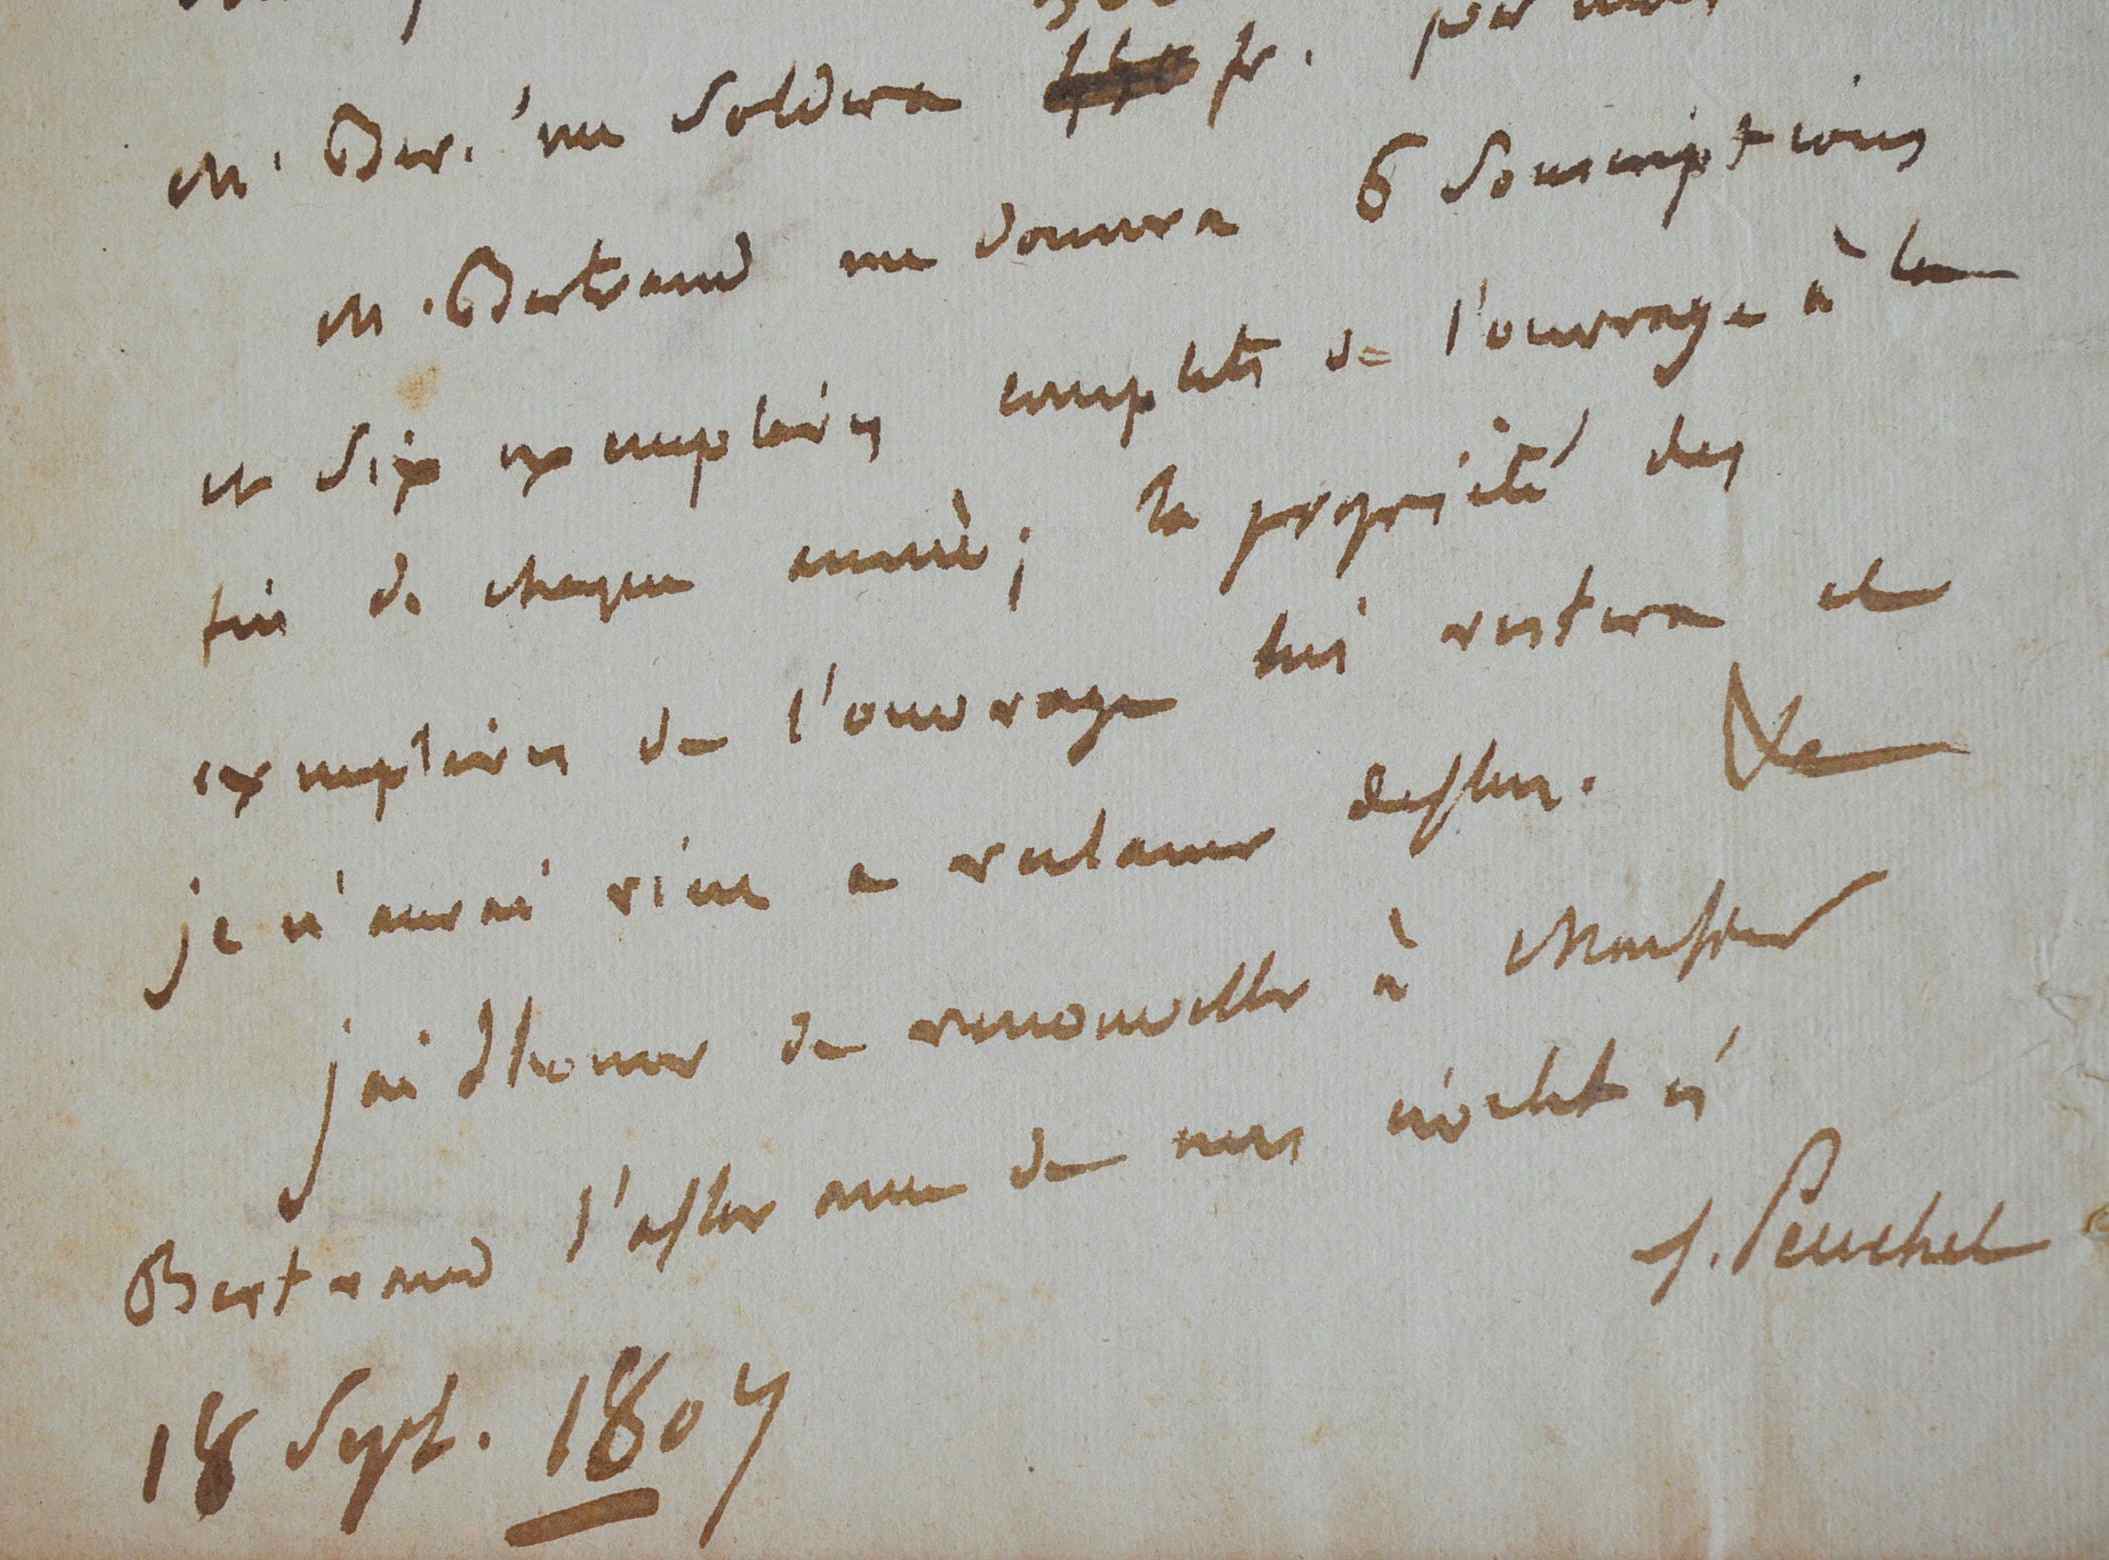 M. Ber. me soldera fr. par mois
M. Bertrand me donnera 6 souscriptions
et six exemplaires complets de l'ouvrage à la
fin de chaque année; la propriété des
exemplaires de l'ouvrage lui restera et
je n'aurai rien a reclamer dessus. &c
j'ai l'honneur de renouveller à Monsieur
Bertrand l'assurance de mes civilités
J. Peuchet
18 Sept. 1807